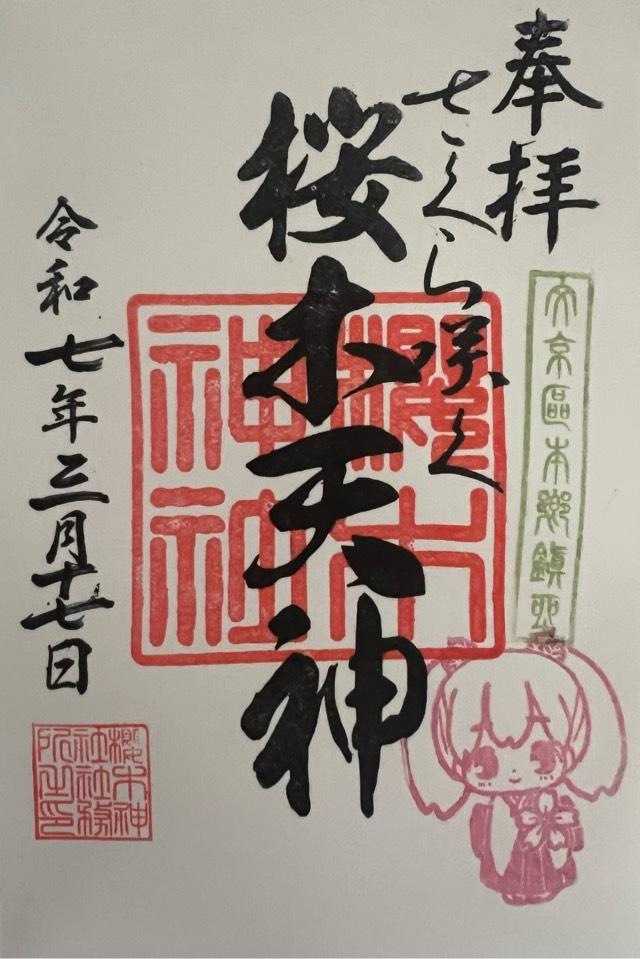 奉拝
さくら咲く
桜木天神
令和七年三月十七日
文京區本鄉鎮
櫻木
神社
櫻木神
社社務
所之印